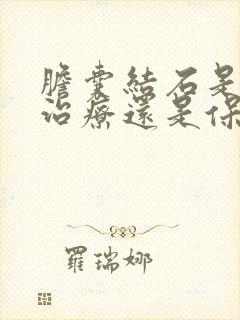 膽囊結石是
治療還是保
羅瑞娜